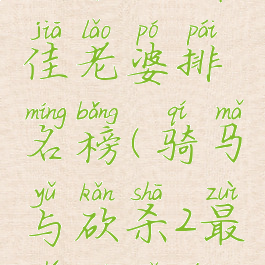 jiā lǎo pó pái
佳老婆排
míng bǎng qí mǎ
名榜(骑马
yǔ kǎn shā zuì
与砍杀2最